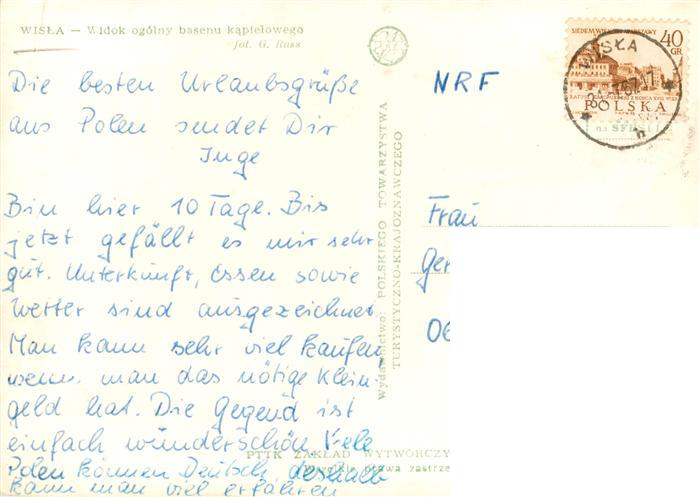 WISŁA — Widok ogólny basenu kąpielowego
fot. G. Russ
Die besten Urlaubsgrüße
aus Polen sendet Dir
Inge
Bin hier 10 Tage. Bis
jetzt gefällt es mir sehr
gut. Unterkunft, Essen sowie
Wetter sind ausgezeichnet
Man kann sehr viel kaufen
wenn man das nötige Klein-
geld hat. Die Gegend ist
einfach wunderschön Viele
Polen können Deutsch deshalb
kann man viel erfahren
Wydawnictwo: POLSKIEGO TOWARZYSTWA
TURYSTYCZNO-KRAJOZNAWCZEGO
PTTK ZAKŁAD WYTWÓRCZY
prawa zastrze
NRF
Frau
Ger
06
SIEDEM WIEKÓW WARSZAWY
40
GR
POLSKA
WISŁA
na SFBS